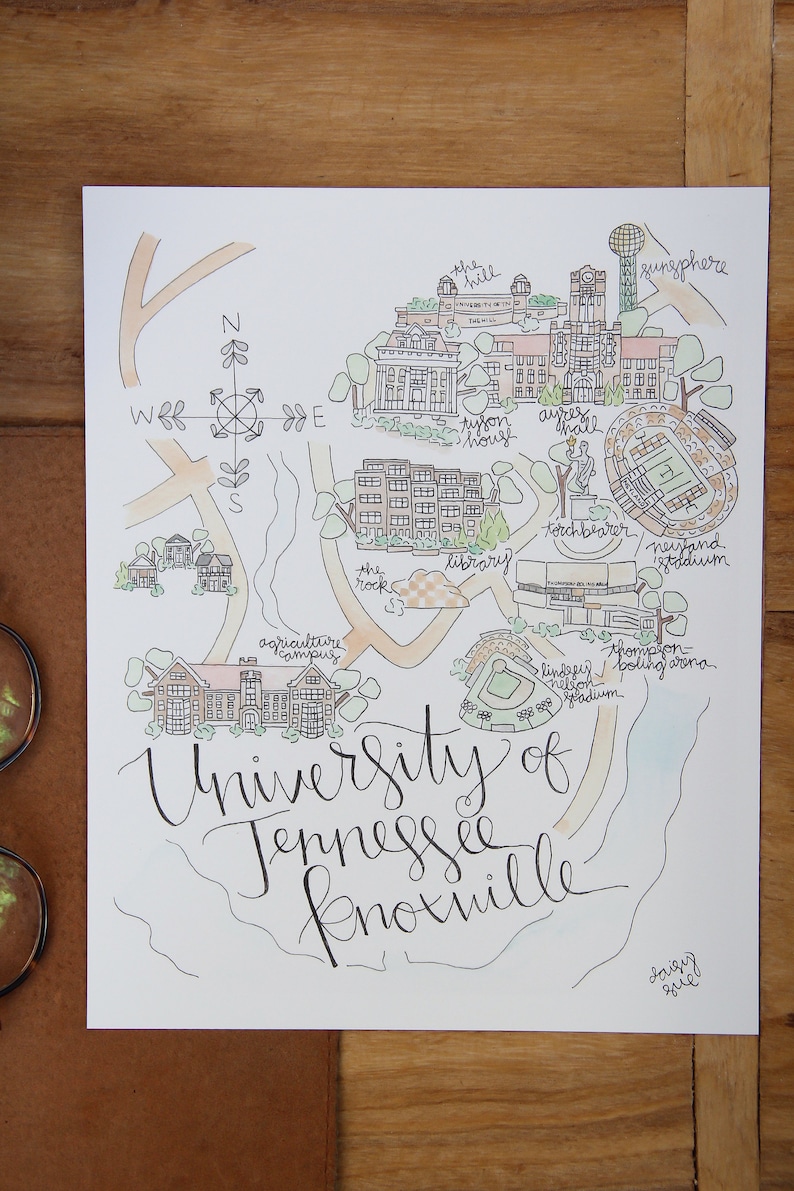 sunsphere
the
hill
UNIVERSITY OF TN
THE HILL
N
W E
S
tyson
house
ayres
hall
torchbearer
neyland
stadium
library
the
rock
THOMPSON-BOLING ARENA
thompson-
boling arena
agriculture
campus
lindsey
nelson
stadium
University of
Tennessee
Knoxville
daisy
sue